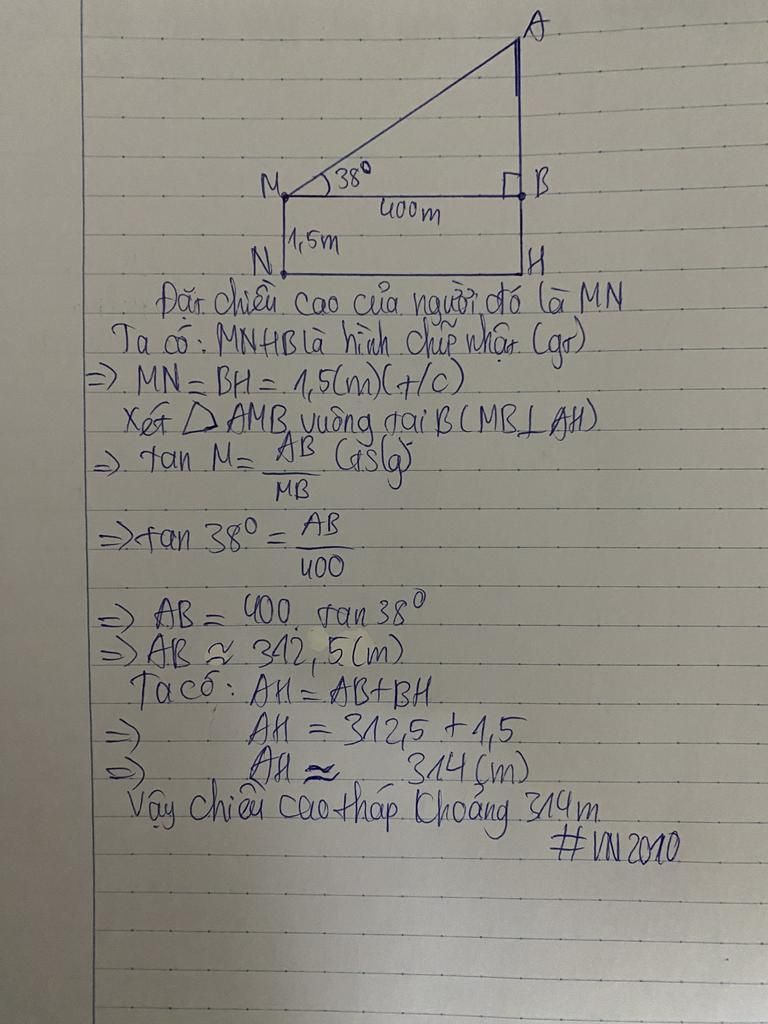 A
M 38° B
400m
1,5m
N H
Đặt chiều cao của người đó là MN
Ta có: MNHB là hình chữ nhật (gt)
=> MN = BH = 1,5(m)(t/c)
Xét △ AMB vuông tại B (MB⊥AH)
=> tan M = AB/MB (tslg)
=> tan 38° = AB/400
=> AB = 400. tan 38°
=> AB ≈ 312,5(m)
Ta có: AH = AB+BH
=> AH = 312,5 + 1,5
=> AH ≈ 314(m)
Vậy chiều cao tháp khoảng 314m
#VN2010